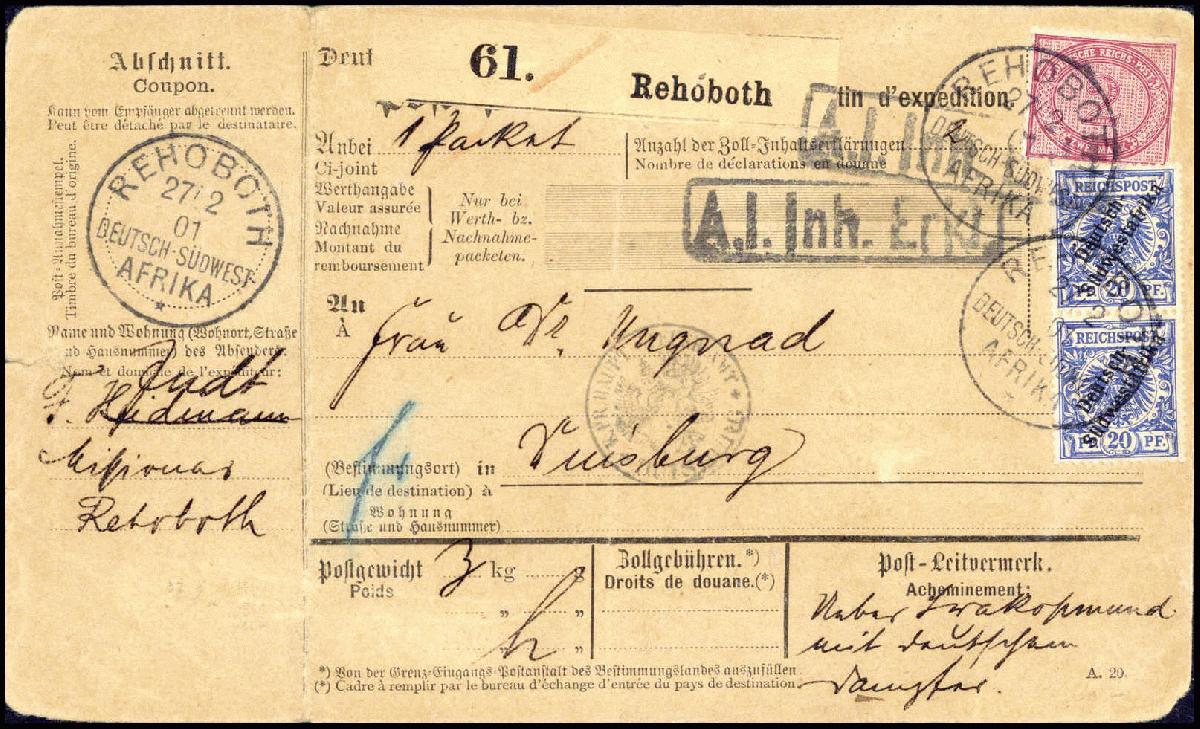 Abschnitt.
Coupon.
Kann vom Empfänger abgetrennt werden.
Peut être détaché par le destinataire.
Post-Annahmestempel.
Timbre du bureau d'origine.
REHOBOTH
27/2
01
DEUTSCH-SÜDWEST-
AFRIKA
Name und Wohnung (Wohnort, Straße
und Hausnummer) des Absenders
Nom et domicile de l'expéditeur:
Heidmann
Missionar
Rehoboth
Deut
61.
Rehoboth
tin d'expédition.
Anbei
Ci-joint
1 Packet
Anzahl der Zoll-Inhaltserklärungen
Nombre de déclarations en douane
2
Werthangabe
Valeur assurée
Nachnahme
Montant du
remboursement
Nur bei
Werth- bz.
Nachnahme-
packeten.
A.I. Inh.
A.I. Inh. Erkl.
An
À
Frau Dr. Ungnad
(Bestimmungsort) in
(Lieu de destination) à
Duisburg
Wohnung
(Straße und Hausnummer)
Postgewicht
Poids
3 kg
Zollgebühren.*)
Droits de douane.(*)
Post-Leitvermerk.
Acheminement:
Ueber Swakopmund
mit deutschem
Dampfer.
*) Von der Grenz-Eingangs-Postanstalt des Bestimmungslandes auszufüllen.
(*) Cadre à remplir par le bureau d'échange d'entrée du pays de destination.
A. 20
REHOBOTH
27/2
DEUTSCH-SÜDWEST
AFRIKA
REICHSPOST
Deutsch-
Südwestafrika
PF. 20 PF.
REICHSPOST
Deutsch-
Südwestafrika
PF. 20 PF.
DEUTSCH-SÜDWEST
AFRIKA